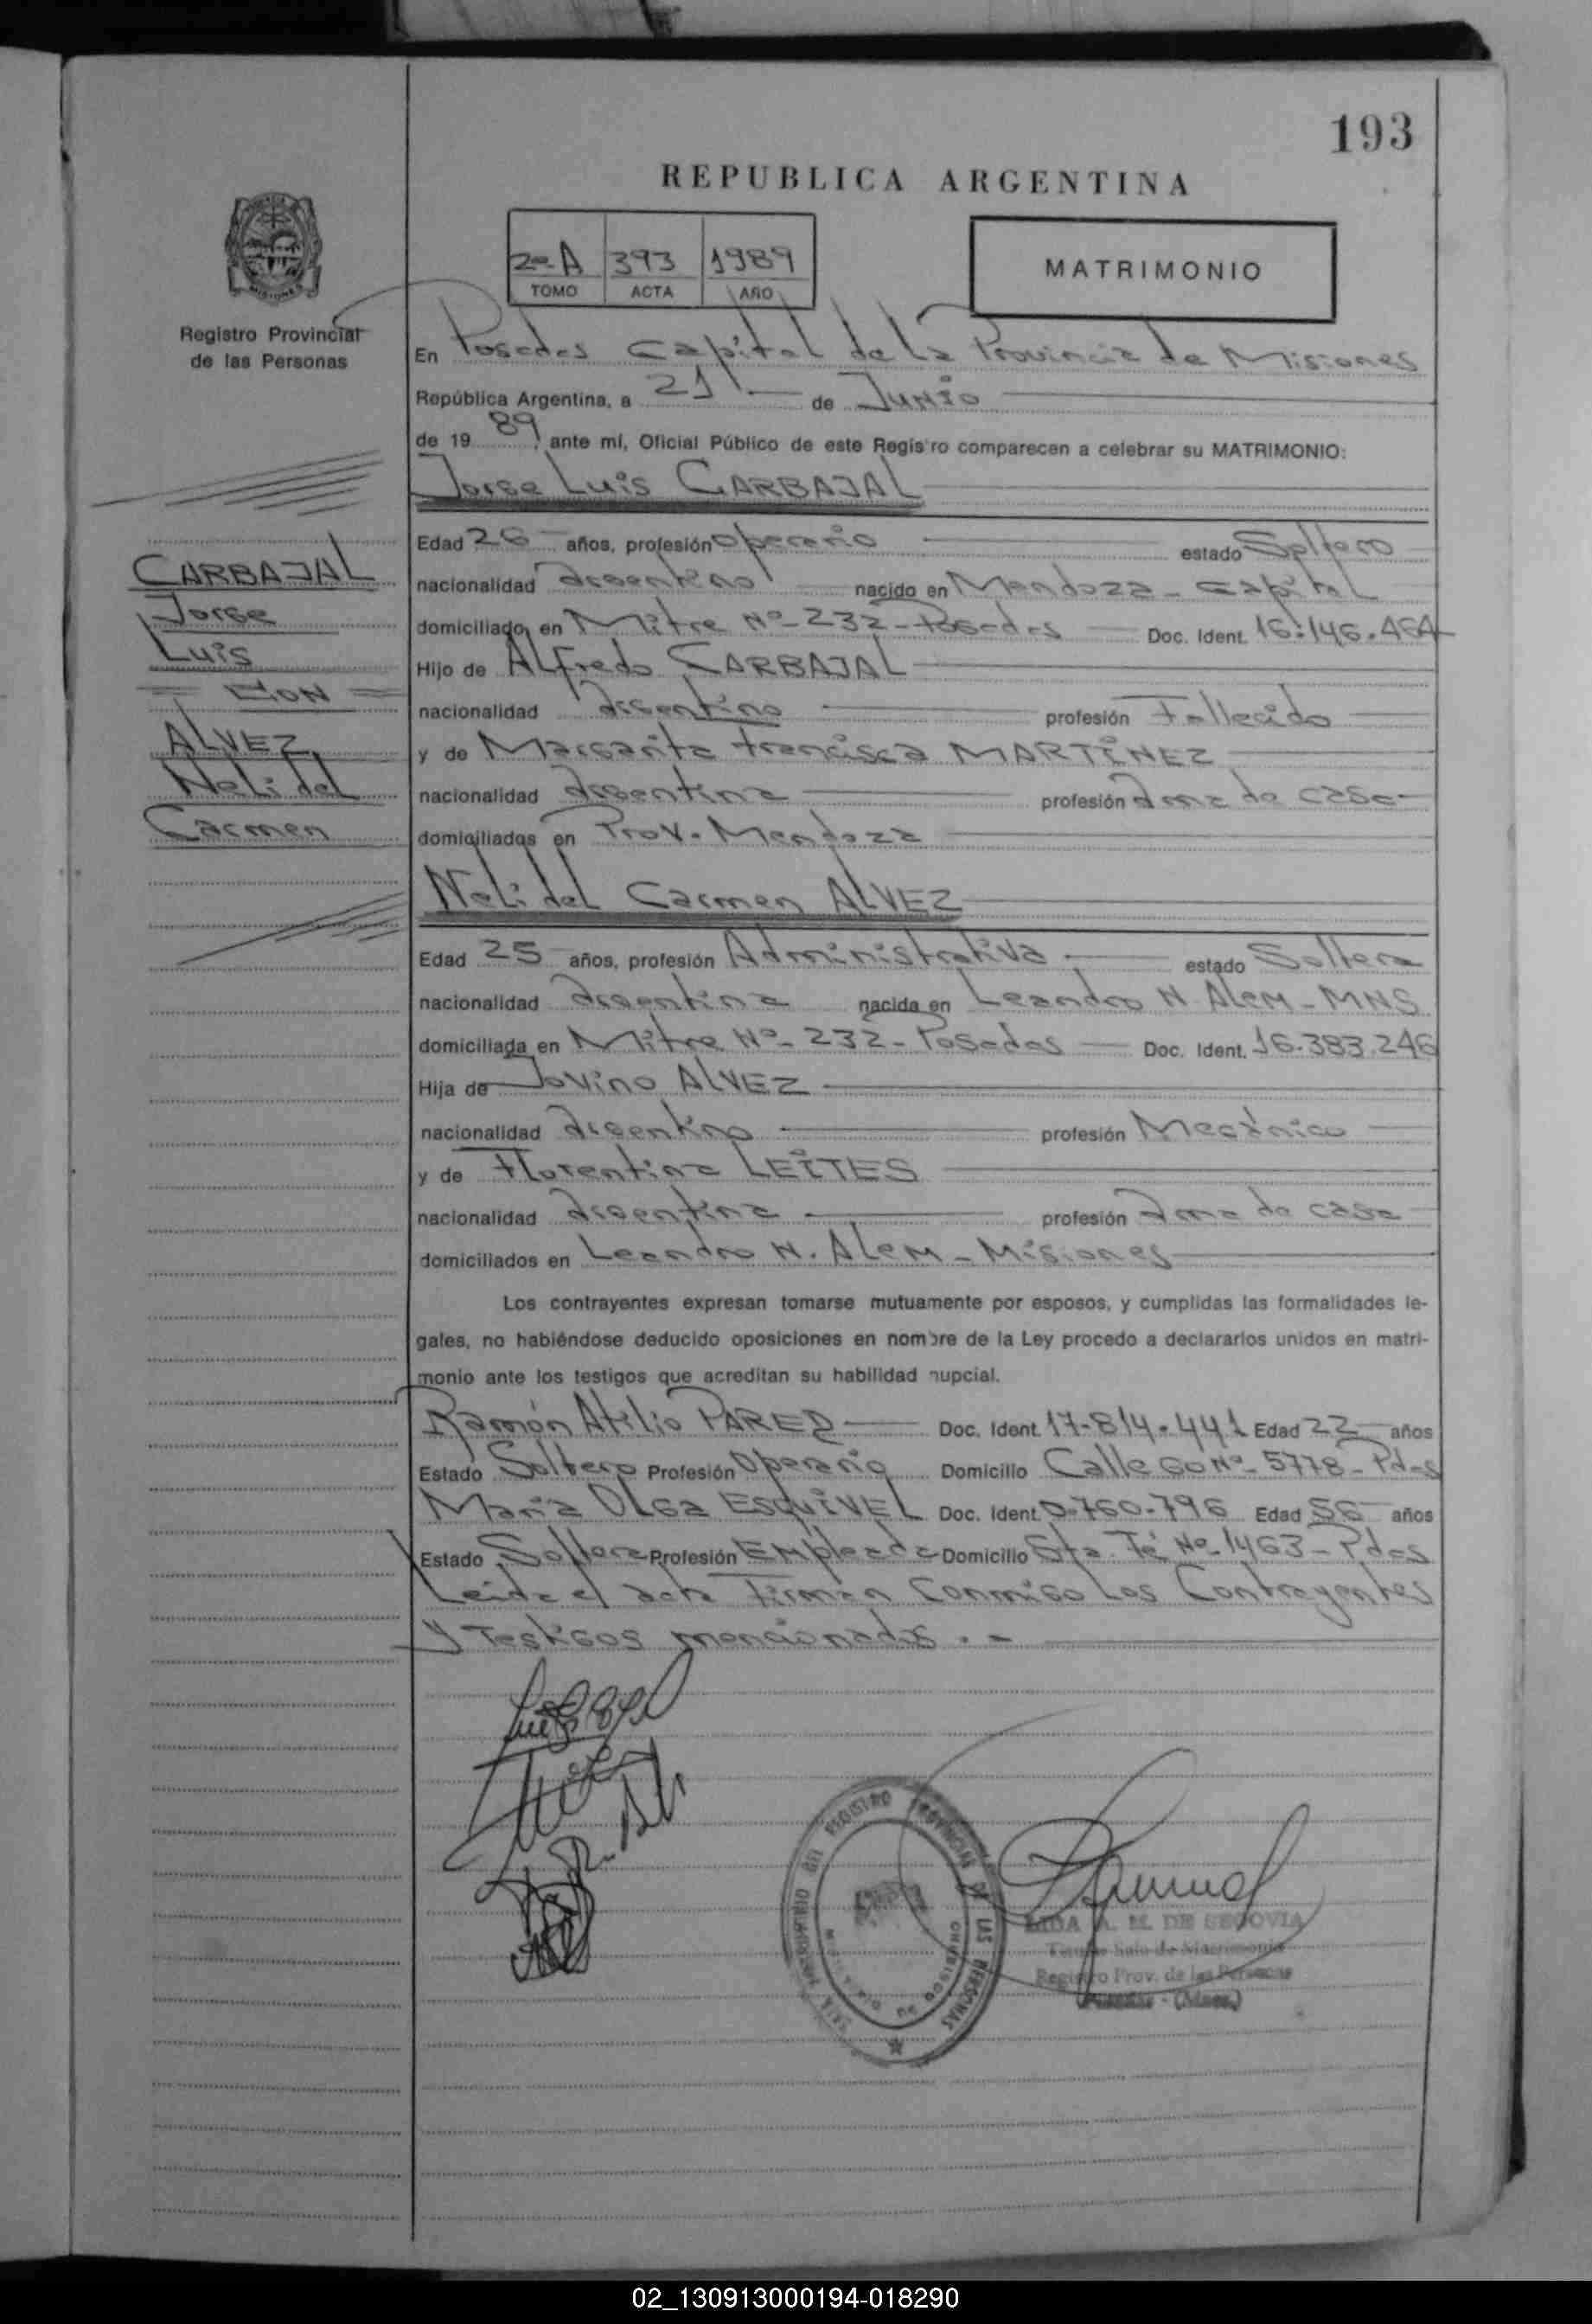 193
REPUBLICA ARGENTINA
2º A 393 1989
TOMO ACTA AÑO
MATRIMONIO
MISIONES
Registro Provincial
de las Personas
En Posadas Capital de la Provincia de Misiones
República Argentina, a 21 de Junio
de 19 89, ante mí, Oficial Público de este Registro comparecen a celebrar su MATRIMONIO:
Jorge Luis CARBAJAL
Edad 26 años, profesión operario estado Soltero
nacionalidad argentino nacido en Mendoza - Capital
domiciliado en Mitre Nº 232 - Posadas Doc. Ident. 16.146.464
Hijo de Alfredo CARBAJAL
nacionalidad argentino profesión Fallecido
y de Margarita Francisca MARTINEZ
nacionalidad argentina profesión ama de casa
domiciliados en Prov. Mendoza
CARBAJAL
Jorge
Luis
= CON =
ALVEZ
Neli del
Carmen
Neli del Carmen ALVEZ
Edad 25 años, profesión Administrativa estado Soltera
nacionalidad argentina nacida en Leandro N. Alem - MNS
domiciliada en Mitre Nº - 232 - Posadas Doc. Ident. 16.383.246
Hija de Jovino ALVEZ
nacionalidad argentino profesión Mecánico
y de Florentina LEITES
nacionalidad argentina profesión ama de casa
domiciliados en Leandro N. Alem - Misiones
Los contrayentes expresan tomarse mutuamente por esposos, y cumplidas las formalidades le-
gales, no habiéndose deducido oposiciones en nombre de la Ley procedo a declararlos unidos en matri-
monio ante los testigos que acreditan su habilidad nupcial.
Ramón Atilio PAREZ Doc. Ident. 17.814.441 Edad 22 años
Estado Soltero Profesión Operario Domicilio Calle 60 Nº - 5778 - Pdas
Maria Olga ESQUIVEL Doc. Ident. 0.760.796 Edad 56 años
Estado Soltera Profesión Empleada Domicilio Sta. Fé Nº 1463 - Pdas
Leida el acta Firman Conmigo Los Contrayentes
y Testigos mencionados. -
REGISTRO PROVINCIAL DE LAS PERSONAS
LIDA A. M. DE SEGOVIA
Titular Sala de Matrimonio
Registro Prov. de las Personas
Posadas - (Mnes.)
02_130913000194-018290